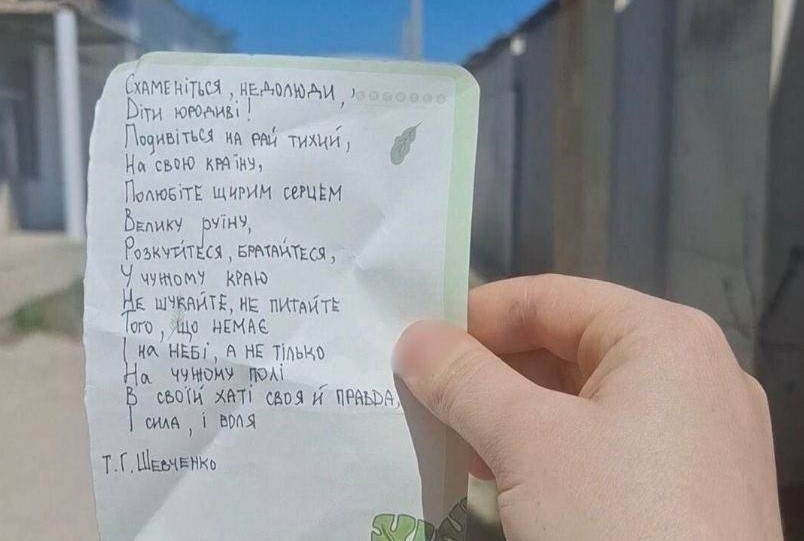 Схаменіться, недолюди,
Діти юродиві!
Подивіться на рай тихий,
На свою країну,
Полюбіте щирим серцем
Велику руїну,
Розкутйтеся, братайтеся,
У чужому краю
Не шукайте, не питайте
Того, що немає
І на небі, а не тілько
На чужому полі
В своїй хаті своя й правда,
І сила, і воля
Т.Г. Шевченко